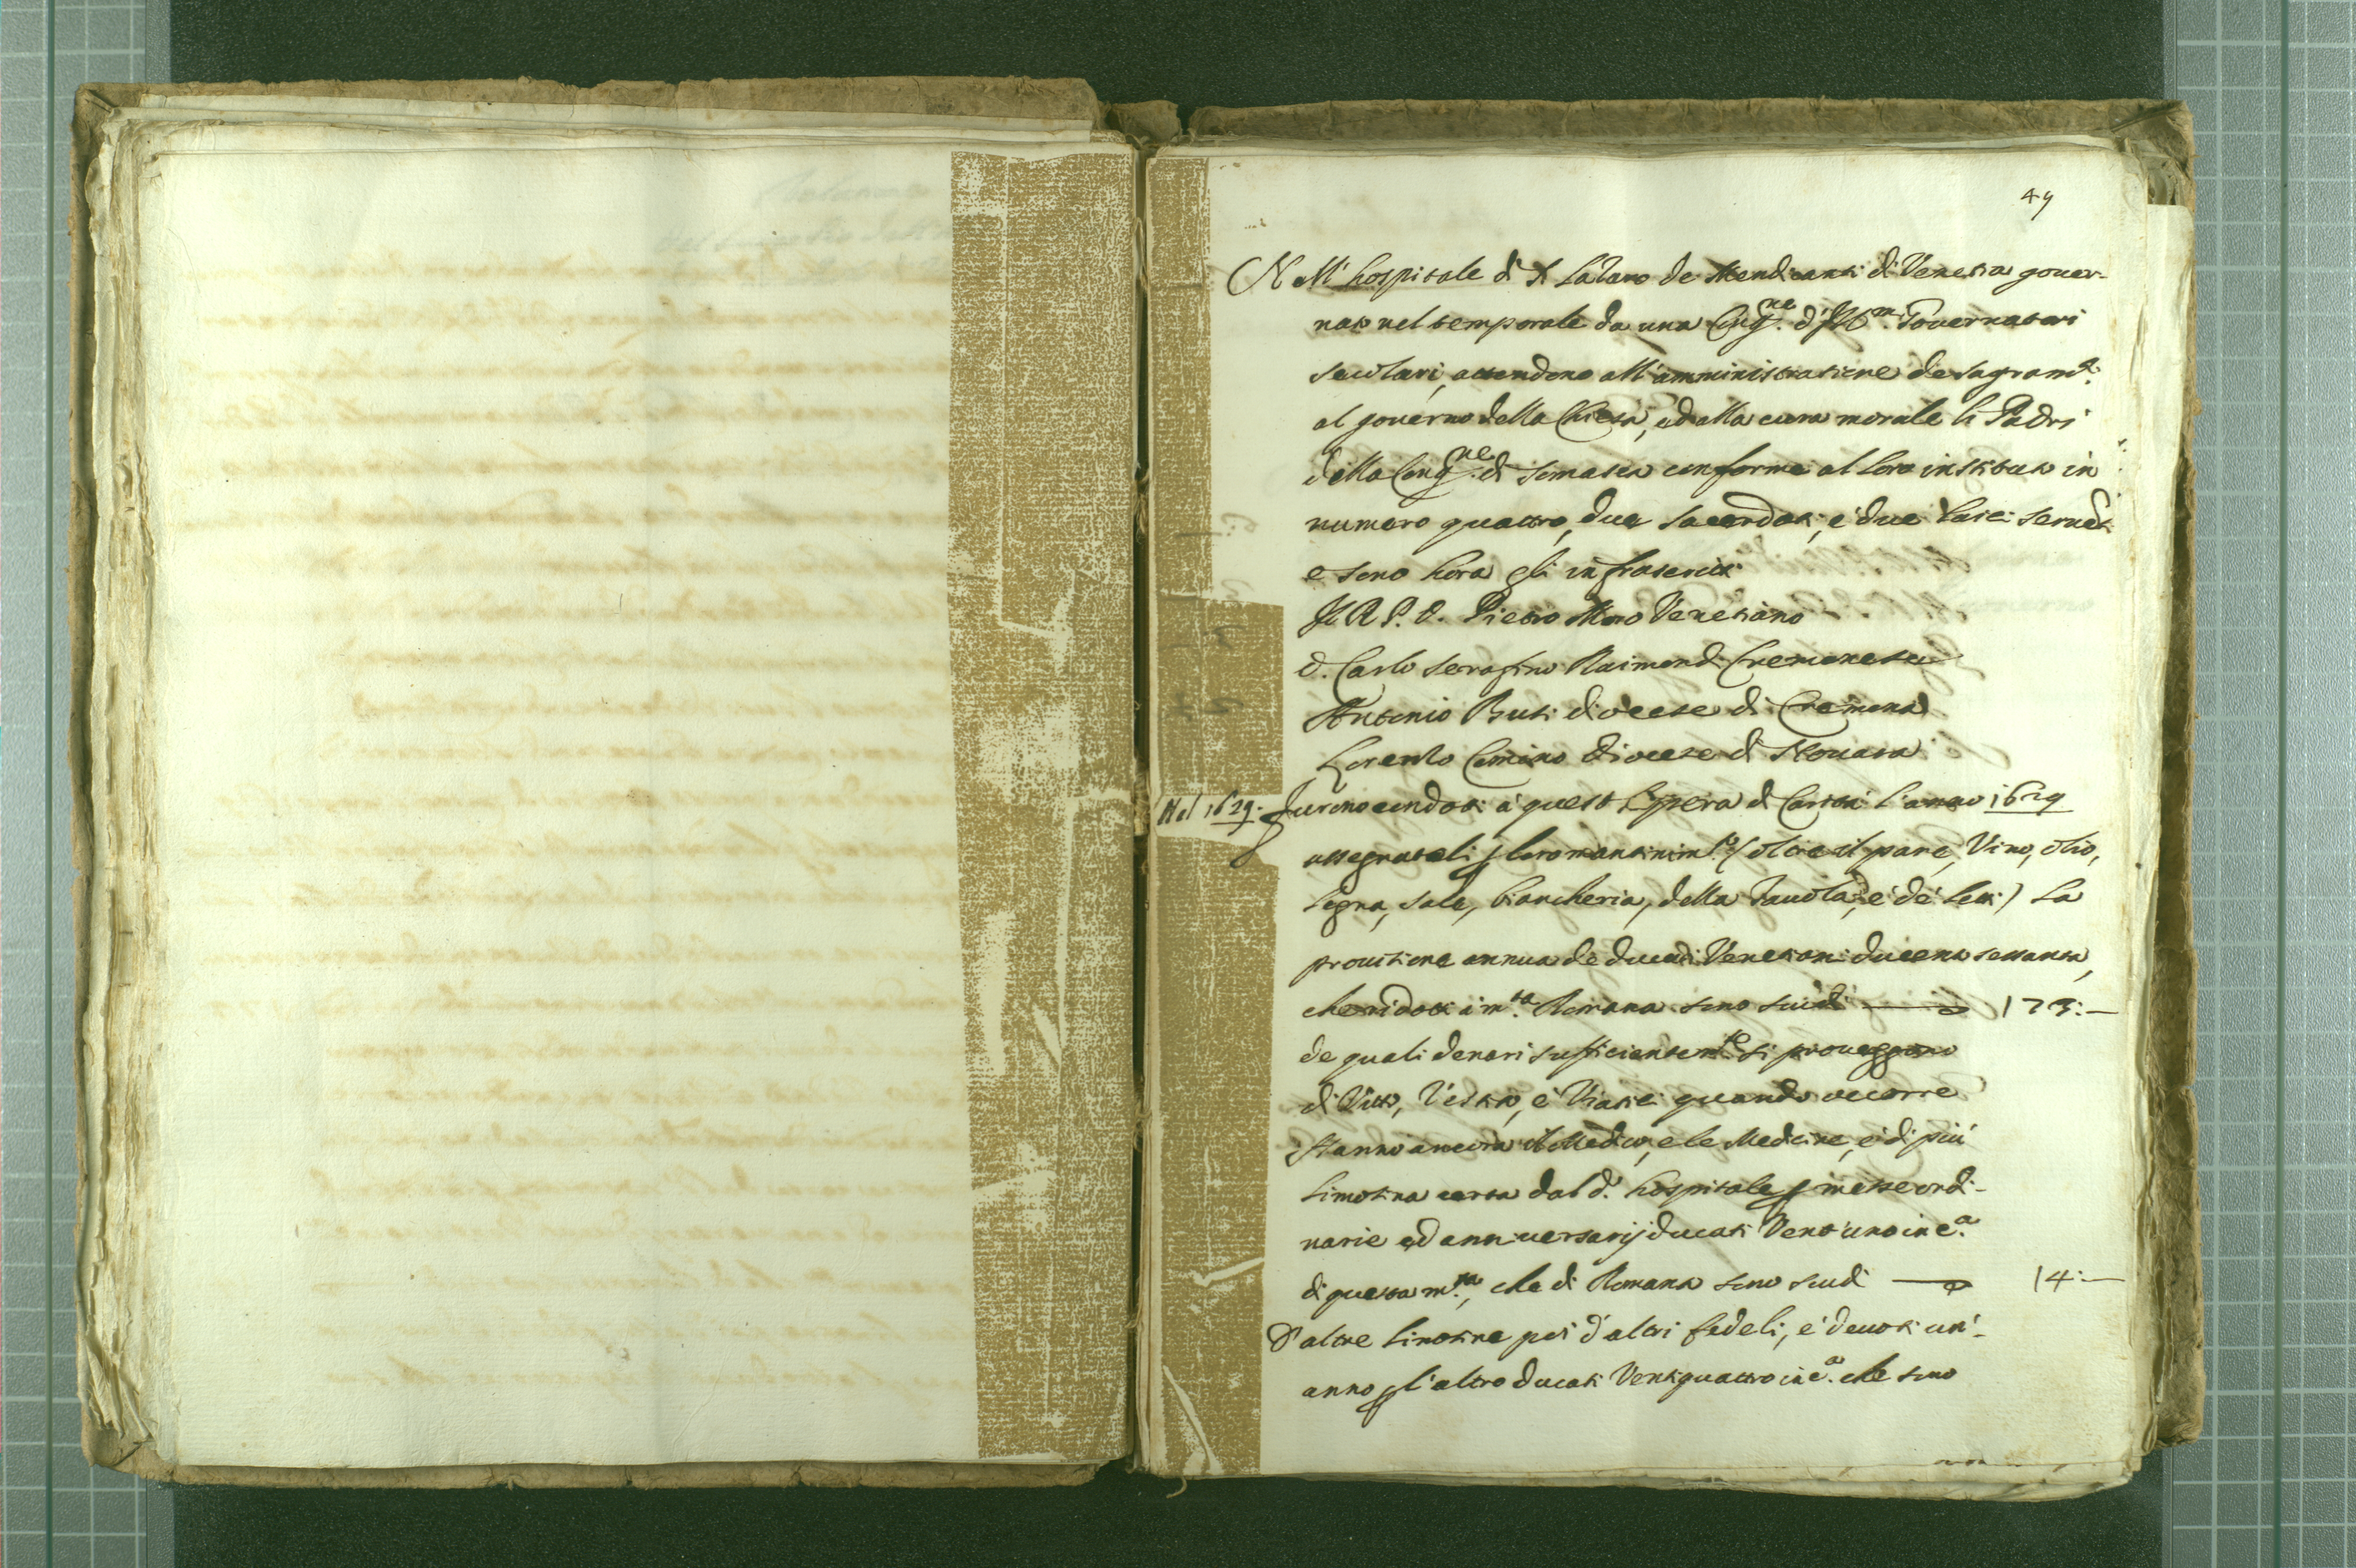 49
Nell' hospitale di S. Lazaro de Mendicanti di Venetia gouer-
nato nel temporale da una Cong.ne d' Ill.mi Gouernatori
secolari, attendono all' amministratione de sagram.ti
al gouerno della Chiesa, ed alla cura morale li Padri
della Cong.ne di Somasca conforme al loro instituto in
numero quattro, due sacerdoti, e due laici seruẽti
e sono hora gli infrascritti
Il R. P. D. Pietro Moro Venetiano
D. Carlo Serafino Raimondi Cremonese
Antonio diocese di Cremona
Lorenzo Comino diocese di Nouara
Nel 1629. Furono condotti à quest' opera di Carità l'anno 1629
assegnatoli p loro mantenim.to (oltre il pane, Vino, olio,
legna, sale, biancheria, della Tauola, e de letti) la
prouisione annua de ducati Venetiani ducento sessanta,
che ridotti à m.ta Romana sono scudi 173:—
de quali denari sufficientem.te si proueggono
di Vitto, Vestito, e Viatici quando occorre
Hanno ancora il Medico, e le Medicine, e di più
limosina certa dal d.o hospitale p messe ordi-
narie ed anniuersarij ducati Vent'uno in c.a
di questa m.ta, che di Romana sono scudi 14:—
D'altre limosine poi d'altri fedeli, e deuoti un'-
anno p l'altro ducati Ventiquattro in c.a che sono